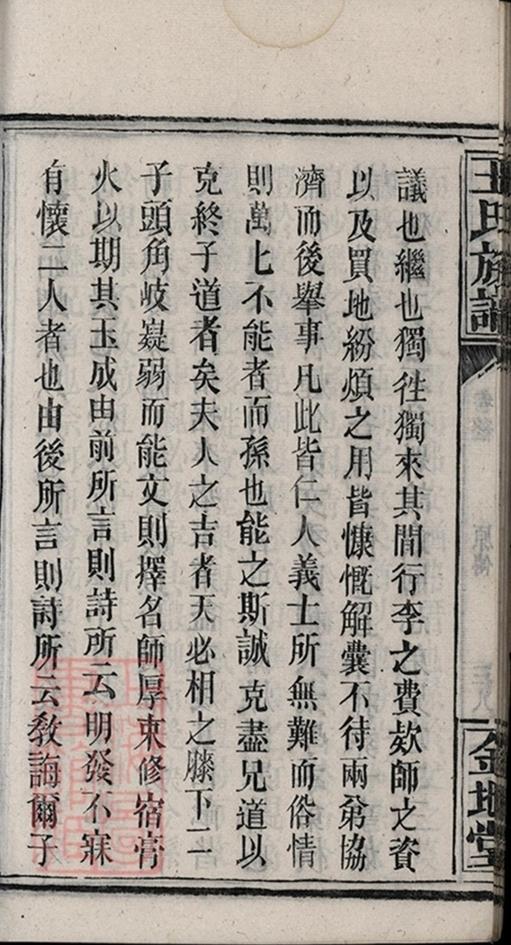 王氏族譜
金坡堂
議也繼也獨徃獨來其間行李之費欵師之資
以及買地紛煩之用皆慷慨解囊不待兩弟協
濟而後舉事凡此皆仁人義士所無難而俗情
則萬乜不能者而孫也能之斯誠克盡兄道以
克終子道者矣夫人之吉者天必相之膝下二
子頭角岐嶷弱而能文則擇名師厚束修宿膏
火以期其玉成由前所言則詩所云明發不寐
有懷二人者也由後所言則詩所云敎誨爾子